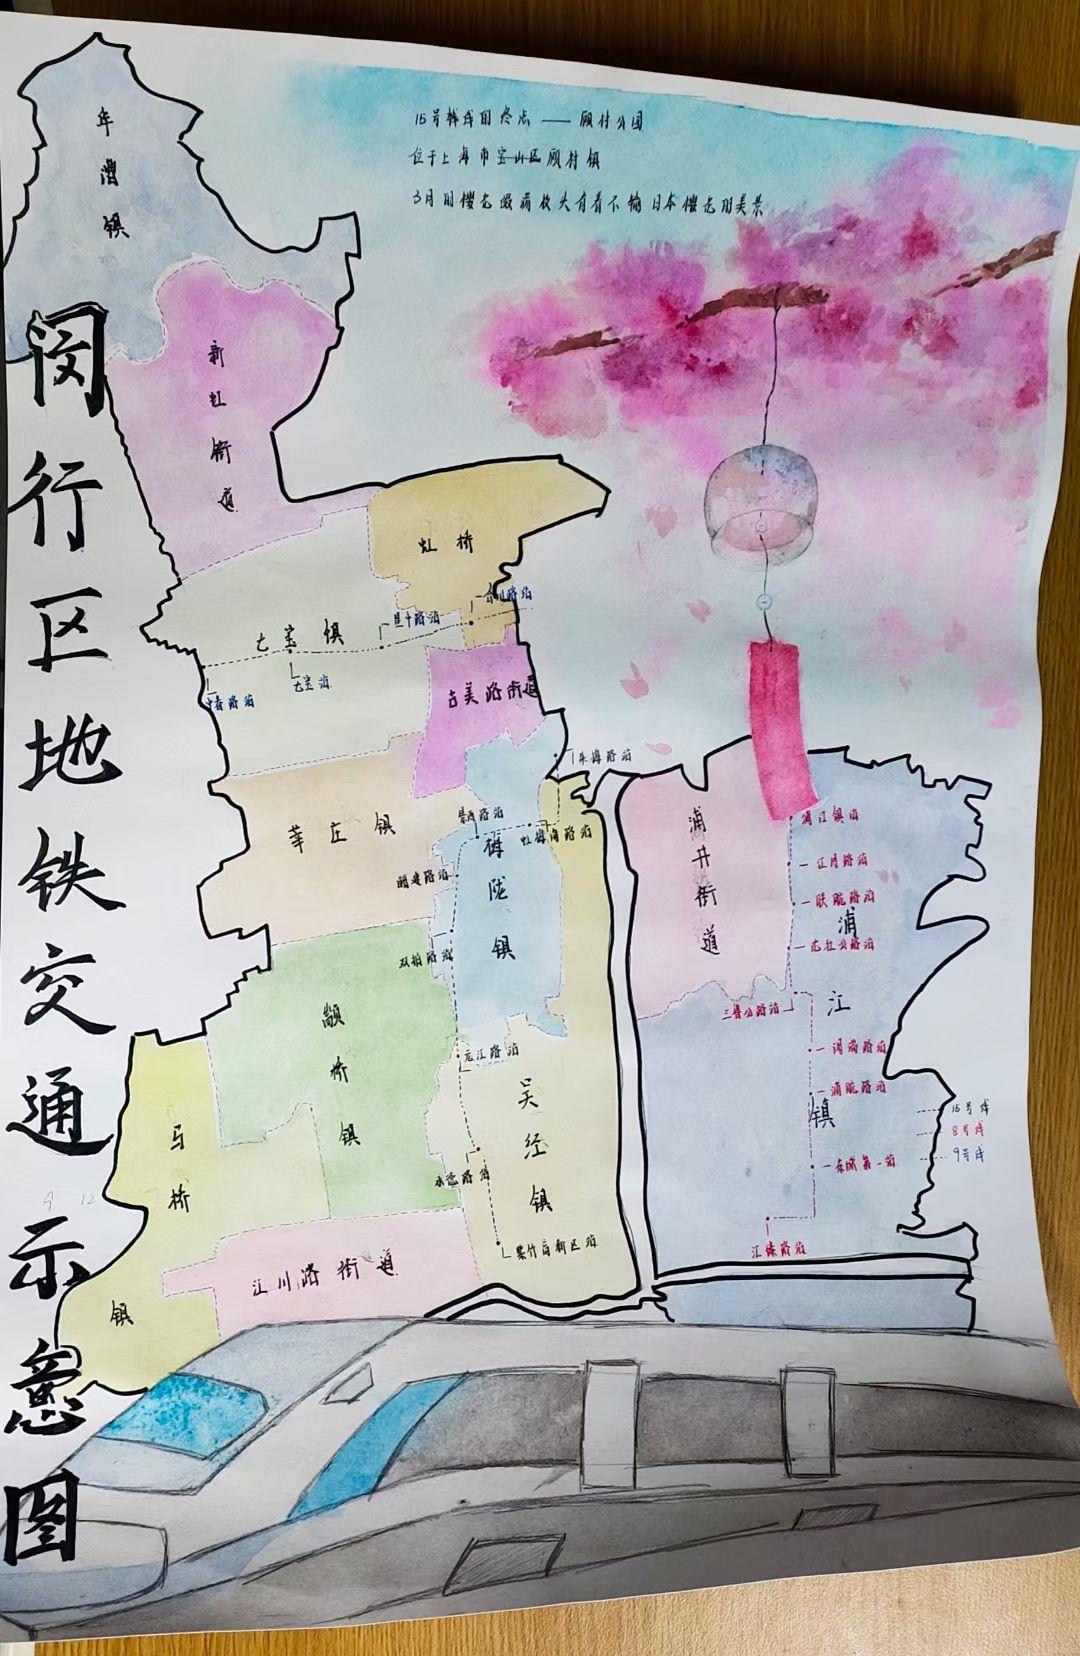 闵行区地铁交通示意图
15号线的终点——顾村公园
位于上海市宝山区顾村镇
3月的樱花
日本樱花的美景
华漕镇
新虹街道
虹桥
七宝镇
合川路站
星中路站
七宝站
中春路站
古美路街道
朱梅路站
莘庄镇
景西路站
虹梅南路站
梅陇镇
顾戴路站
双柏路站
浦江镇站
江月路站
联航路站
浦
沈杜公路站
三鲁公路站
江
闵瑞路站
浦航路站
镇
东城第一站
汇臻路站
浦井街道
颛桥镇
元江路站
吴泾镇
永德路站
紫竹高新区站
马桥镇
江川路街道
15号线
8号线
9号线